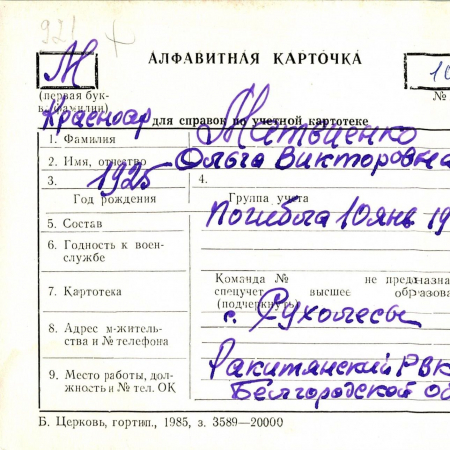 921
М
АЛФАВИТНАЯ КАРТОЧКА
10
(первая бук-
ва фамилии)
№
Красноар
для справок по учетной картотеке
1. Фамилия Матвиенко
2. Имя, отчество Ольга Викторовна
3. 1925 4.
Год рождения Группа учета
5. Состав Погибла 10 янв 19
6. Годность к воен-
службе
7. Картотека
Команда № не предназна
спецучет высшее образова
(подчеркнуть)
8. Адрес м-житель-
ства и № телефона
с.
9. Место работы, дол-
жность и № тел. ОК
Ракитянский РВК
Белгородской об
Б. Церковь, гортип., 1985, з. 3589—20000